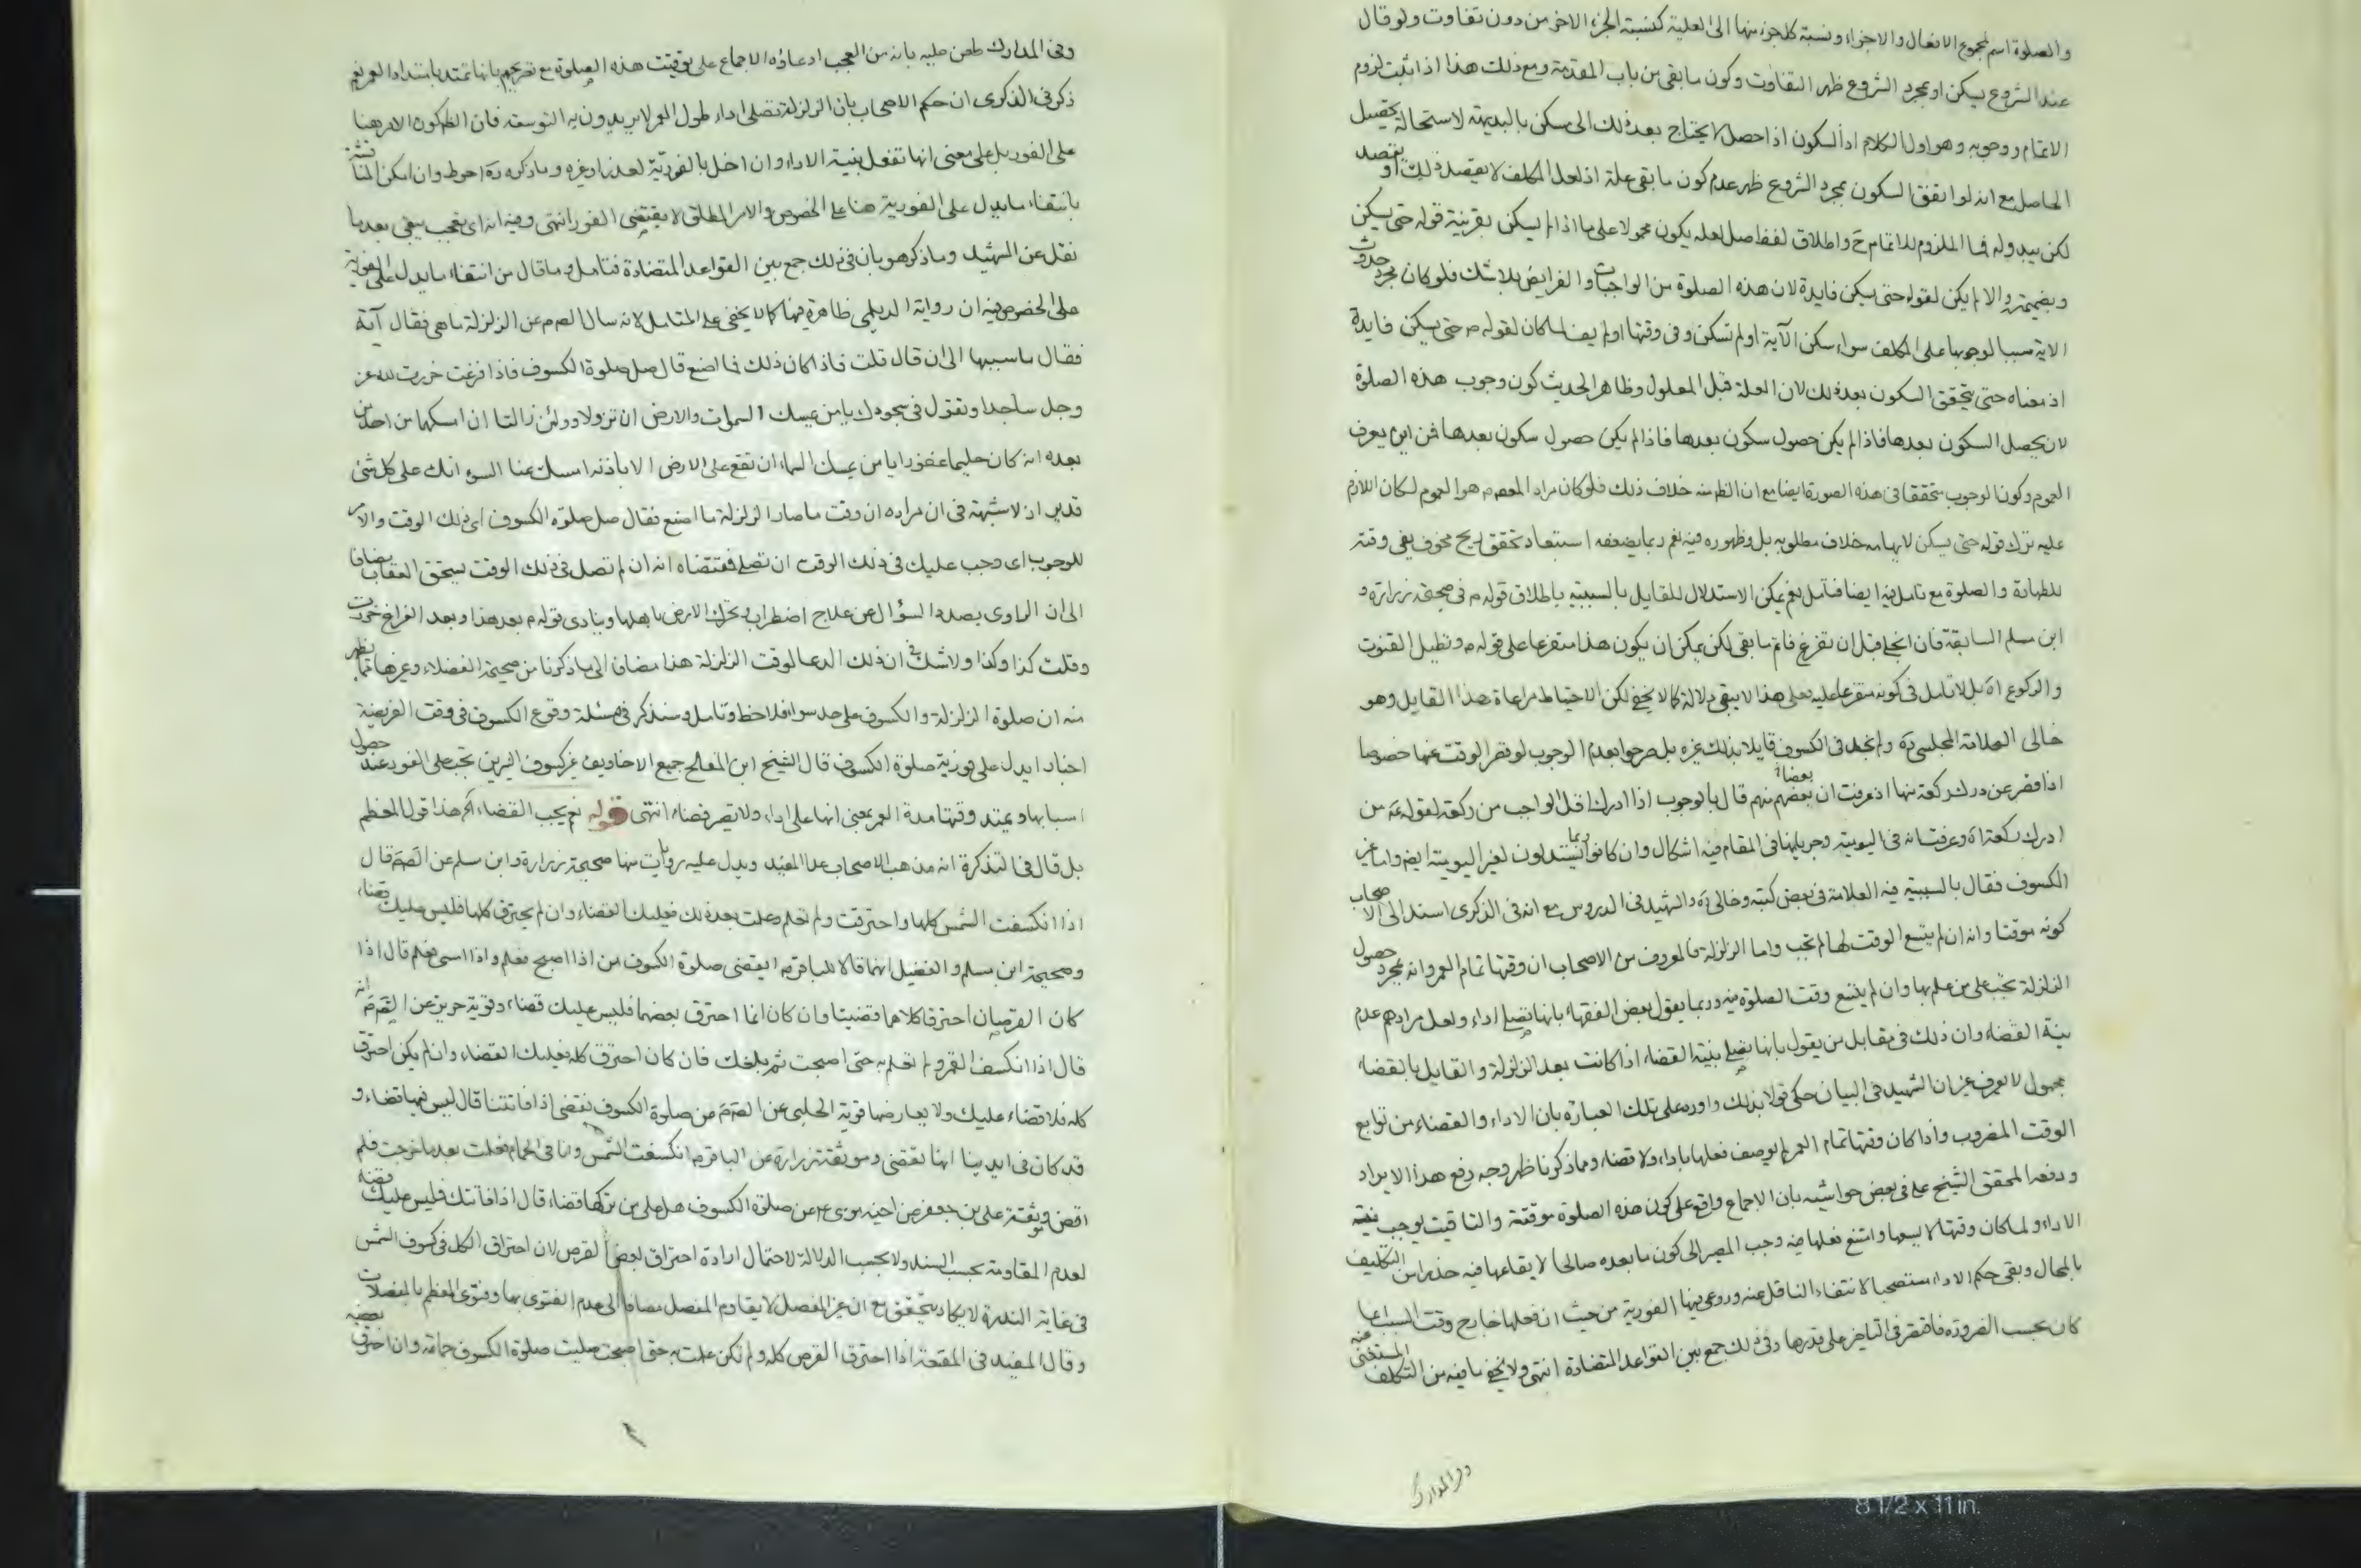 والصلوة اسم لمجموع الافعال والاجزاء ونسبة كل جزء منها الى العلية كنسبة الجزء الاخر من دون تفاوت ولو قال
عند الشروع يسكن او بمجرد الشروع ظهر التفاوت وكون ما بقى من باب المقدمة ومع ذلك هذا اذا ثبت لزوم
الاتمام ووجوبه وهو اول الكلام اذ السكون اذا حصل لا يحتاج بعد ذلك الى مسكن بالبديهة لاستحالة تحصيل
الحاصل مع انه لو اتفق السكون بمجرد الشروع ظهر عدم كون ما بقى علة اذ لعل المكلف لا يقصد ذلك او يقصد
لكن يبدو له فما الملزوم للاتمام ح واطلاق لفظ صل لعله يكون محمولا على ما اذا لم يسكن بقرينة قوله حتى يسكن
والا لم يكن لقوله حتى يسكن فايدة لان هذه الصلوة من الواجبات والفرايض بلا شك فلو كان مجرد حدوث
الاية سببا لوجوبها على المكلف سواء سكن الآية او لم تسكن وفى وقتها او لم يف لما كان لقوله م حتى يسكن فايدة
اذ معناه حتى يتحقق السكون بعد ذلك لان العلة قبل المعلول وظاهر الحديث كون وجوب هذه الصلوة
لان يحصل السكون بعدها فاذا لم يكن حصول سكون بعدها فاذا لم يكن حصول سكون بعدها فمن اين يعرف
العموم وكون الوجوب متحققا فى هذه الصورة ايضا مع ان الظ منه خلاف ذلك فلو كان مراد المعصوم م هو العموم لكان اللازم
عليه ترك قوله حتى يسكن لايهامه خلاف مطلوبه بل وظهوره فيه نعم ربما يضعفه استبعاد تحقق ريح مخوف يفى وقته
للطهارة والصلوة مع تامل فيه ايضا فتامل نعم يمكن الاستدلال للقايل بالسببية باطلاق قوله م فى صحيحة زرارة و
ابن مسلم السابقة فان انجلى قبل ان تفرغ فاتم ما بقى لكن يمكن ان يكون هذا متفرعا على قوله م وتطيل القنوت
والركوع اه بل لا تامل فى كونه متفرعا عليه فعلى هذا لا يبقى دلالة كما لا يخفى لكن الاحتياط مراعاة هذا القايل وهو
خالى العلامة المجلسى ره ولم نجد فى الكسوف قايلا بذلك غيره بل صرحوا بعدم الوجوب لو قصر الوقت عنها خصوصا
اذا قصر عن درك ركعة منها اذ عرفت ان بعضهم منهم قال بالوجوب اذا ادرك اقل الواجب من ركعة لقوله ع من
ادرك ركعة اه وعرفت انه فى اليومية وجريانها فى المقام فيه اشكال وان كانوا ربما يستدلون لغير اليومية ايضا واما غير
الكسوف فقال بالسببية فيه العلامة فى بعض كتبه وخالى ره والشهيد فى الدروس مع انه فى الذكرى اسند الى الاصحاب
كونه موقتا وانه ان لم يتسع الوقت لها لم تجب واما الزلزلة فالمعروف من الاصحاب ان وقتها تمام العمر وانه بمجرد حصول
الزلزلة تجب على من علم بها وان لم يتسع وقت الصلوة فيه وربما يقول بعض الفقهاء بانها تصلى اداء ولعل مرادهم عدم
نية القضاء وان ذلك فى مقابل من يقول بانها تصلى بنية القضاء اذا كانت بعد الزلزلة والقايل بالقضاء
مجهول لا يعرف غير ان الشهيد فى البيان حكى قولا بذلك واورد على تلك العبارة بان الاداء والقضاء من توابع
الوقت المضروب واذا كان وقتها تمام العمر لم يوصف فعلها باداء ولا قضاء ومما ذكرنا ظهر وجه دفع هذا الايراد
ودفعه المحقق الشيخ على فى بعض حواشيه بان الاجماع واقع على كون هذه الصلوة موقتة والتاقيت يوجب نية
الاداء ولما كان وقتها لا يسعها وامتنع فعلها فيه وجب المصير الى كون ما بعده صالحا لايقاعها فيه حذرا من التكليف
بالمحال وبقى حكم الاداء مستصحبا لانتفاء الناقل عنه وروعى فيها الفورية من حيث ان فعلها خارج وقت السبب انما
كان بحسب الضرورة فاقتصر فى التاخير على قدرها وفى ذلك جمع بين القواعد المتضادة انتهى ولا يخفى ما فيه من التكلف المستغنى عنه
وفى المدارك
وفى المدارك طعن عليه بانه من العجب ادعاؤه الاجماع على توقيت هذه الصلوة مع تصريحهم بانها تمتد بامتداد العمر نعم
ذكر فى الذكرى ان حكم الاصحاب بان الزلزلة تصلى اداء طول العمر لا يريدون به التوسعة فان الظ كون الامر هنا
على الفور بل على معنى انها تفعل بنية الاداء وان اخل بالفورية لعذر او غيره وما ذكره ره احوط وان امكن المناقشة
بانتفاء ما يدل على الفورية هنا على الخصوص والامر المطلق لا يقتضى الفور انتهى وفيه انه اى تعجب يبقى بعد ما
نقل عن الشهيد وما ذكر هو بان فى ذلك جمع بين القواعد المتضادة فتامل وما قال من انتفاء ما يدل على الفورية
على الخصوص فيه ان رواية الديلمى ظاهرة فيها كما لا يخفى على المتامل لانه سال الصم عن الزلزلة ما هى فقال آية
فقال ما سببها الى ان قال قلت فاذا كان ذلك فما اصنع قال صل صلوة الكسوف فاذا فرغت خررت لله عز
وجل ساجدا وتقول فى سجودك يا من يمسك السموات والارض ان تزولا ولئن زالتا ان امسكهما من احد من
بعده انه كان حليما غفورا يا من يمسك السماء ان تقع على الارض الا باذنه امسك عنا السوء انك على كل شئ
قدير اذ لا شبهة فى ان مراده ان وقت ما صار الزلزلة ما اصنع فقال صل صلوة الكسوف اى ذلك الوقت والامر
للوجوب اى وجب عليك فى ذلك الوقت ان تصلى فمقتضاه انه ان لم تصل فى ذلك الوقت يستحق العقاب مضافا
الى ان الراوى بصدد السؤال عن علاج اضطراب وتحرك الارض باهلها وينادى قوله م بعد هذا وبعد الفراغ خررت
وقلت كذا وكذا ولا شك فى ان ذلك الدعا لوقت الزلزلة هذا مضاف الى ما ذكرنا من صحيحة الفضلاء وغيرها مما يظهر
منه ان صلوة الزلزلة والكسوف على حد سواء فلاحظ وتامل وسنذكر فى مسئلة وقوع الكسوف فى وقت الفريضة
اخبارا يدل على فورية صلوة الكسوف قال الشيخ ابن المفلح جميع الاخاويف غير كسوف النيرين تجب على الفور عند حصول
اسبابها ويمتد وقتها مدة العمر بمعنى انها على اداء ولا يصير قضاء انتهى قوله نعم يجب القضاء الخ هذا قول المعظم
بل قال فى التذكرة انه مذهب الاصحاب عدا المفيد ويدل عليه روايات منها صحيحة زرارة وابن مسلم عن الصم قال
اذا انكسفت الشمس كلها واحترقت ولم تعلم وعلمت بعد ذلك فعليك القضاء وان لم يحترق كلها فليس عليك قضاء
وصحيحة ابن مسلم والفضيل انهما قالا للباقر م ايقضى صلوة الكسوف من اذا اصبح فعلم واذا امسى فعلم قال اذا
كان القرصان احترقا كلاهما قضيتا وان كان انما احترق بعضهما فليس عليك قضاء وقوية حريز عن الصم انه
قال اذا انكسف القمر ولم تعلم به حتى اصبحت ثم بلغك فان كان احترق كله فعليك القضاء وان لم يكن احترق
كله فلا قضاء عليك ولا يعارضها قوية الحلبى عن الصم من صلوة الكسوف نقضى اذا فاتتنا قال ليس فيها قضاء و
قد كان فى ايدينا انها تقضى وموثقة زرارة عن الباقر م انكسفت الشمس وانا فى الحمام فعلمت بعد ما خرجت فلم
اقض وموثقة على بن جعفر عن اخيه موسى ع عن صلوة الكسوف هل على من تركها قضاء قال اذا فاتتك فليس عليك قضاء
لعدم المقاومة بحسب السند ولا بحسب الدلالة لاحتمال ارادة احتراق بعض القرص لان احتراق الكل فى كسوف الشمس
فى غاية الندرة لا يكاد يتحقق مع ان غير المفصل لا يقاوم المفصل مضافا الى عدم الفتوى بها وفتوى المعظم بالمفصلات
وقال المفيد فى المقنعة اذا احترق القرص كله ولم تكن علمت به حتى اصبحت صليت صلوة الكسوف جماعة وان احترق بعضه